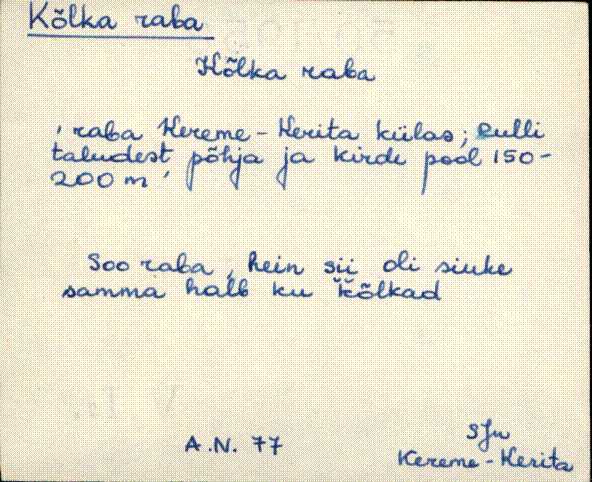 Kõlka raba
Kõlka raba
' raba Kereme-Kerita külas; Eulli
taludest põhja ja kirde pool 150-
200 m '
Soo raba, hein sii oli siuke
samma halb ku kõlkad
A.N. 77
SJn
Kereme-Kerita